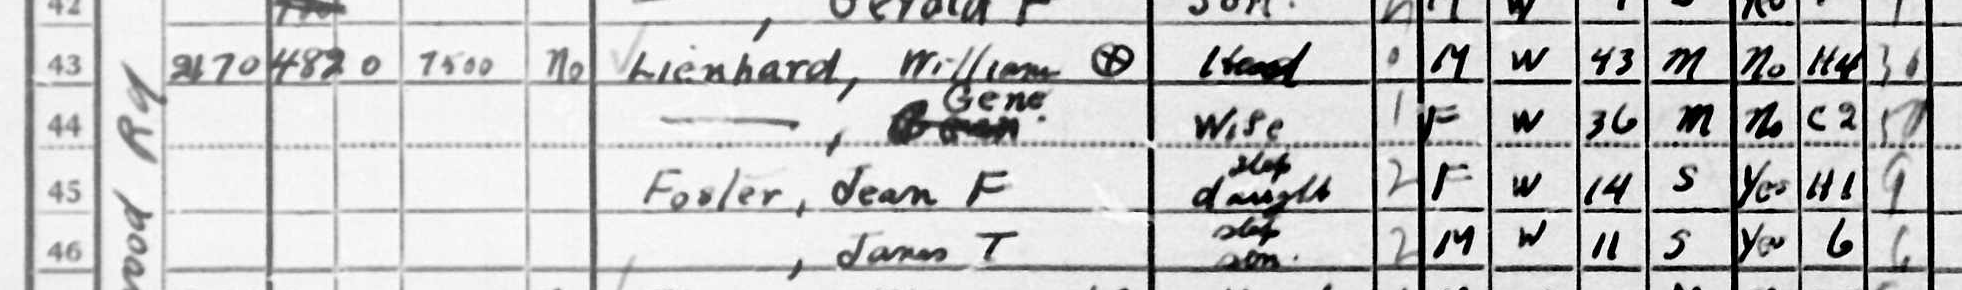 42 , Gerald F son. M W S No
43 2170 482 0 7500 No Lienhard, William ⊗ Head 0 M W 43 M No H4 30
44 —, Gene Wife 1 F W 36 M No C2
45 Foster, Jean F step daught 2 F W 14 S Yes H1 9
46 , James T step son. 2 M W 11 S Yes 6 6
wood Rd